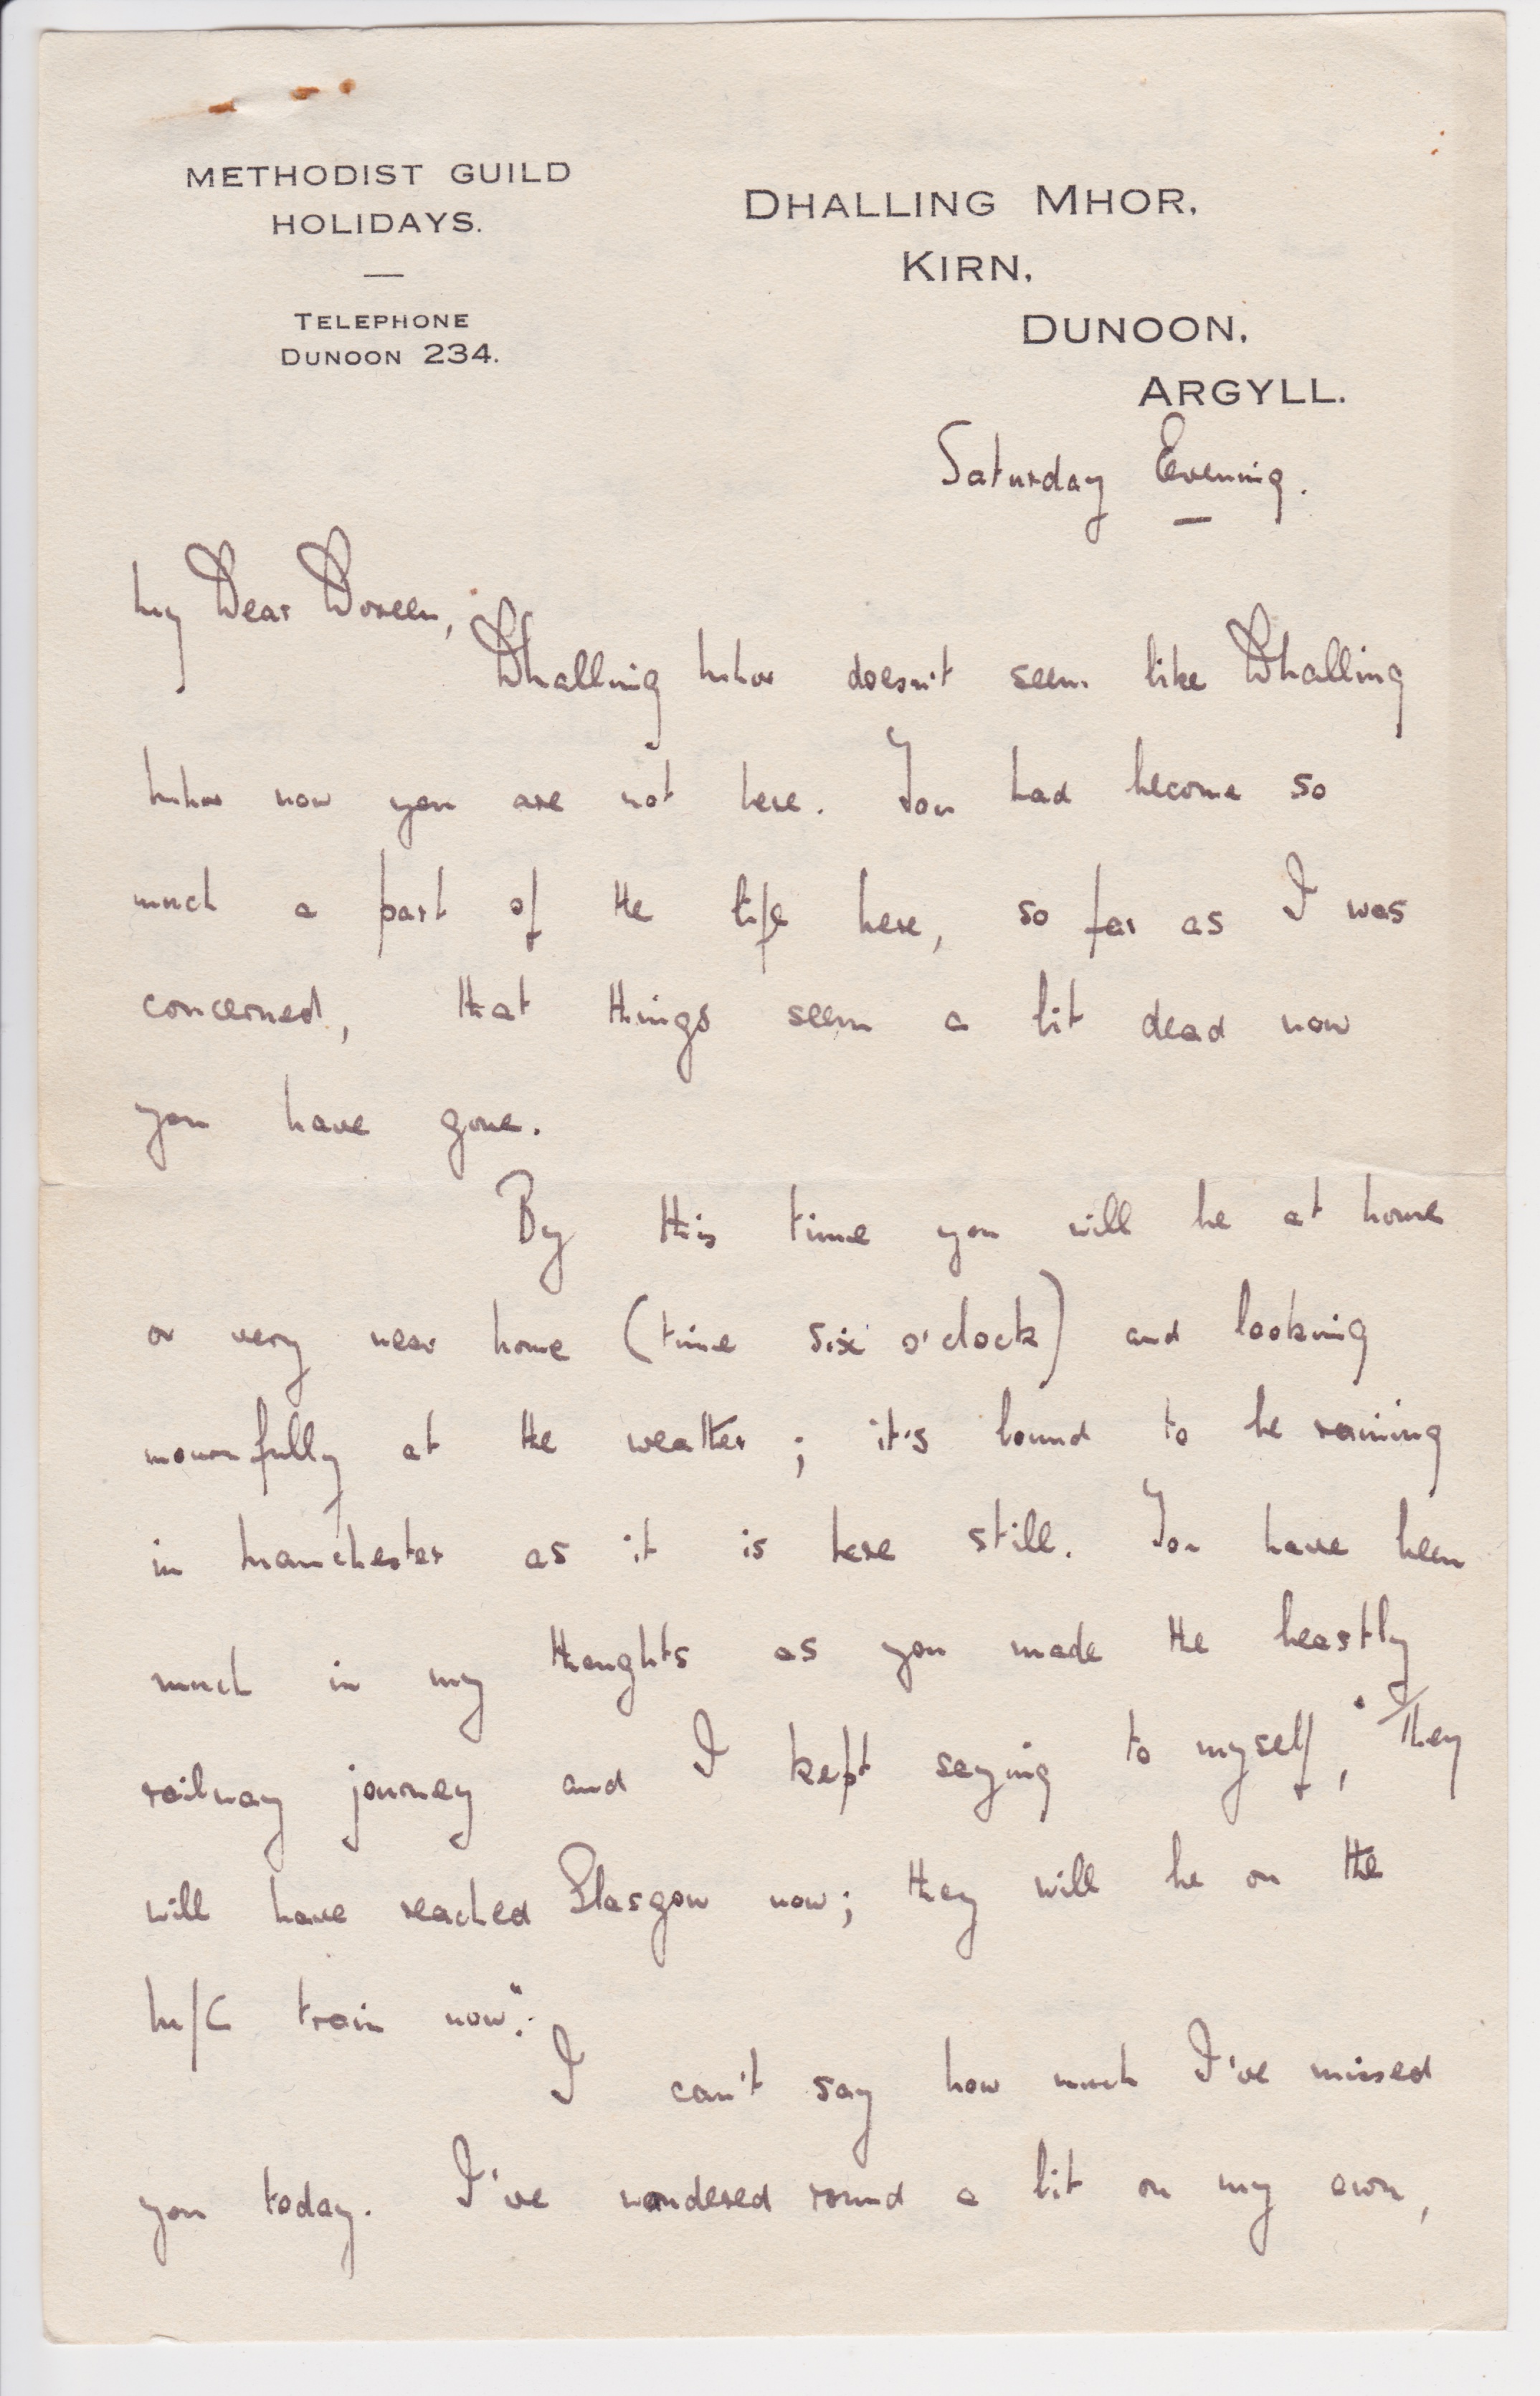 METHODIST GUILD
HOLIDAYS.
TELEPHONE
DUNOON 234.
DHALLING MHOR,
KIRN,
DUNOON,
ARGYLL.
Saturday Evening.
My Dear Doreen,
Dhalling Mhor doesn't seem like Dhalling
Mhor now you are not here. You had become so
much a part of the life here, so far as I was
concerned, that things seem a bit dead now
you have gone.
By this time you will be at home
or very near home (time six o'clock) and looking
mournfully at the weather; it's bound to be raining
in Manchester as it is here still. You have been
much in my thoughts as you made the beastly
railway journey and I kept saying to myself, "They
will have reached Glasgow now; they will be on the
M/C train now".
I can't say how much I've missed
you today. I've wandered round a bit on my own,